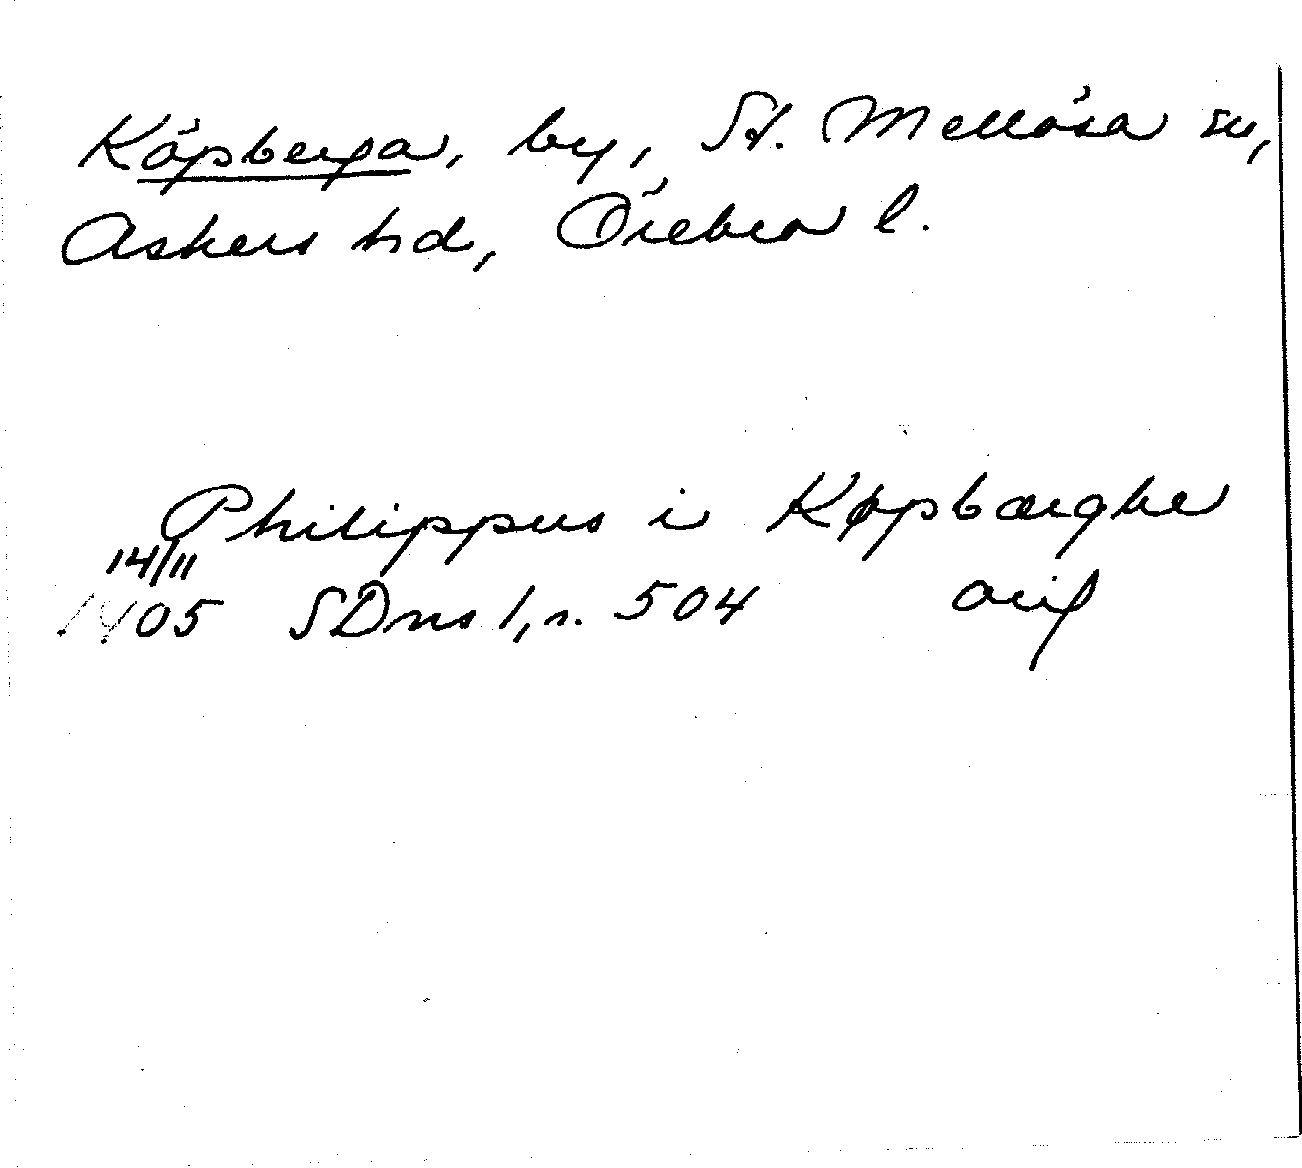 Köpberga, by, St. Mellösa sn,
Askers hd, Örebro l.
Philippus i Køpbærghe
14/11
1405 SDns 1, n. 504 orig